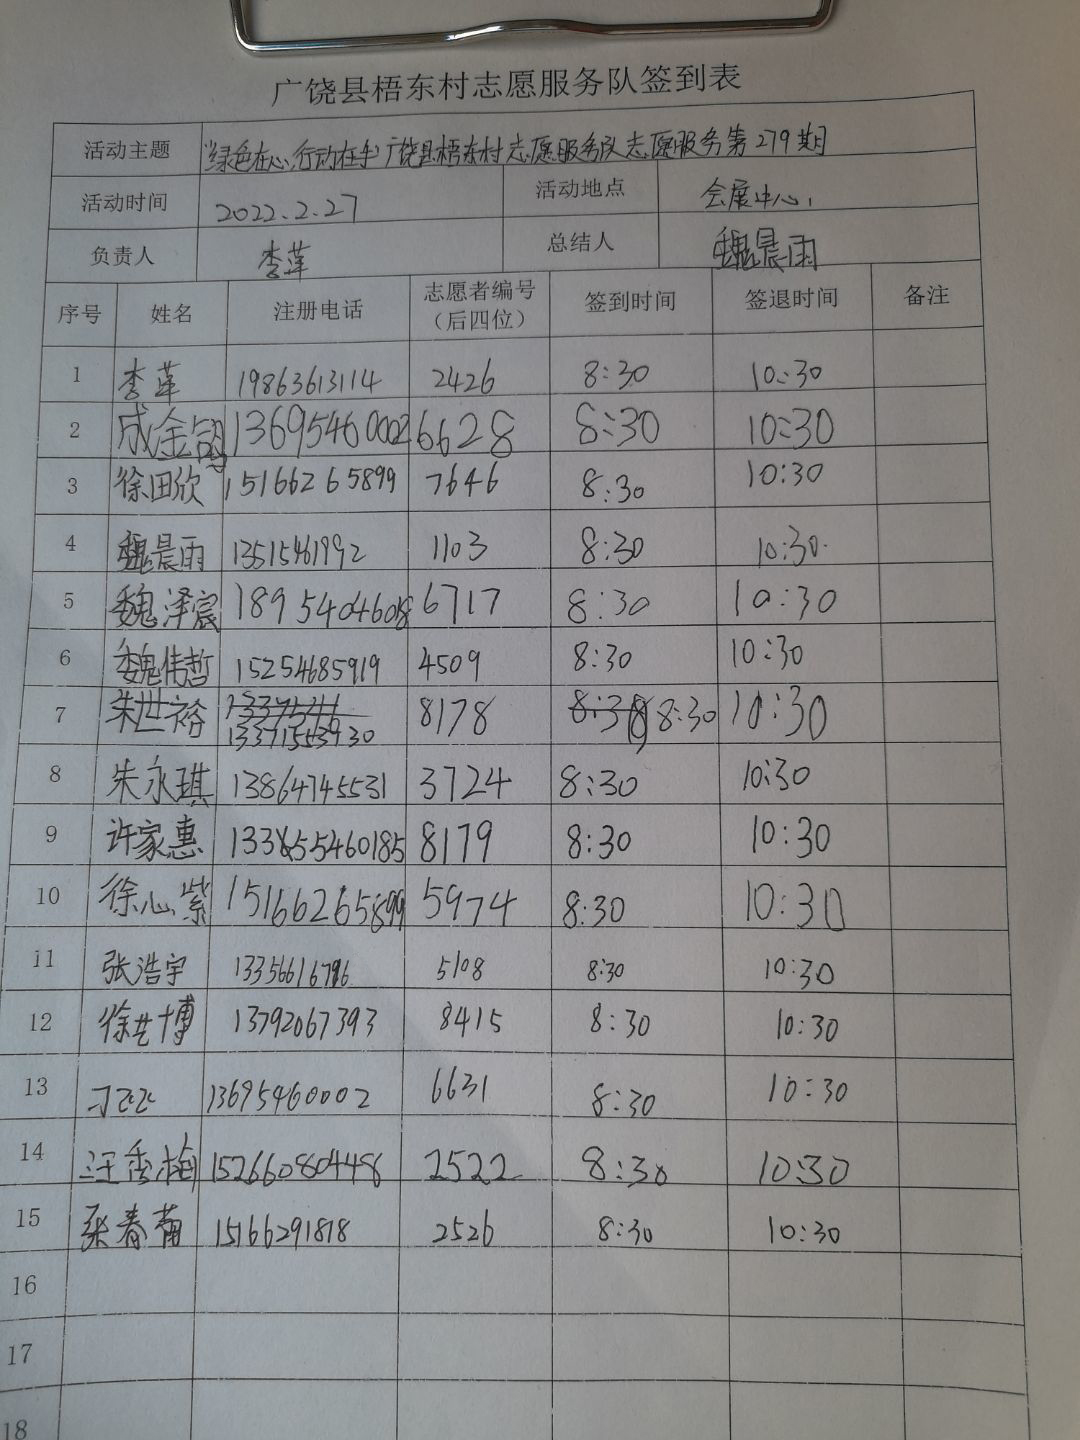 广饶县梧东村志愿服务队签到表
活动主题 "绿色在心,行动在手"广饶县梧东村志愿服务队志愿服务第279期
活动时间 2022.2.27 活动地点 会展中心
负责人 李莲 总结人 魏晨雨
序号 姓名 注册电话 志愿者编号（后四位） 签到时间 签退时间 备注
1 李莲 19863613114 2426 8:30 10:30
2 成金 13695460002 6628 8:30 10:30
3 徐田欣 15166265899 7646 8:30 10:30
4 魏晨雨 1103 8:30 10:30
5 魏泽宸 18954046018 6717 8:30 10:30
6 魏伟哲 15254685919 4509 8:30 10:30
7 朱世裕 8178 8:30 10:30
8 朱永琪 13864745531 3724 8:30 10:30
9 许家惠 8179 8:30 10:30
10 徐心紫 15166265899 5974 8:30 10:30
11 张浩宇 5108 8:30 10:30
12 徐艺博 13792067393 8415 8:30 10:30
13 刁飞飞 13695460002 6631 8:30 10:30
14 汪香梅 15266080448 2522 8:30 10:30
15 张春菊 15166291818 2526 8:30 10:30
16
17
18